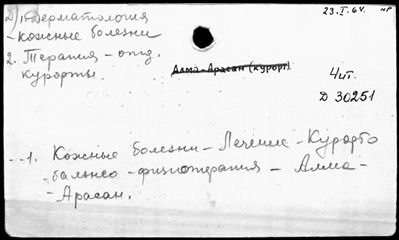 23.I.64. НР
Д) 1. Дерматология
- кожные болезни
2. Терапия - отд.
курорты.
Алма-Арасан (курорт).
Чит.
Д 30251
1. Кожные болезни - Лечение - Курорто
- бальнео - физиотерапия - Алма-
- Арасан.